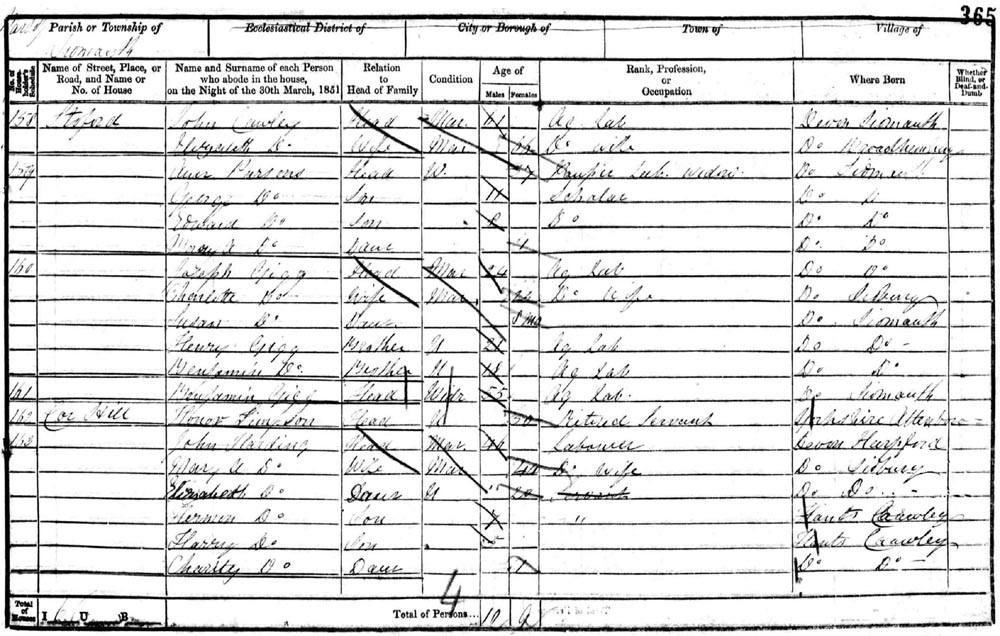 365
Part of
Parish or Township of Ecclesiastical District of City or Borough of Town of Village of
Sidmouth
No. of House-holder's Schedule Name of Street, Place, or Road, and Name or No. of House Name and Surname of each Person who abode in the house, on the Night of the 30th March, 1851 Relation to Head of Family Condition Age of Males Females Rank, Profession, or Occupation Where Born Whether Blind, or Deaf-and-Dumb
158 John Cawley Head Mar 61 Ag Lab Devon Sidmouth
Elizabeth Do Wife Mar Do Wife Do Broadhembury
159 Parsons Head W. 47 Pauper Widow Do Sidmouth
George Do Son 11 Scholar Do Do
Edward Do Son 8 Do Do Do
Mary A Do Daur Do Do
160 Joseph Gigg Head Mar 24 Ag Lab Do Do
Charlotte Do Wife Mar 22 Do Wife Do Sidbury
Susan Do Daur 8 mo Do Sidmouth
Henry Gigg Brother U 21 Ag Lab Do Do
Benjamin Do Brother U 18 Ag Lab Do Do
161 Benjamin Gigg Head Widr 55 Ag Lab Do Sidmouth
162 Hill Honor Simpson Head U 50 Retired Servant Yorkshire
153 John Harding Head Mar Labourer Devon Harpford
Mary A Do Wife Mar 44 Do Wife Do Sidbury
Elizabeth Do Daur U 20 Servant Do Do
Do Son 7 " Hants Crawley
Harry Do Son Hants Crawley
Charity Do Daur 1 Do Do
4
Total of Houses I U B Total of Persons... 10 9